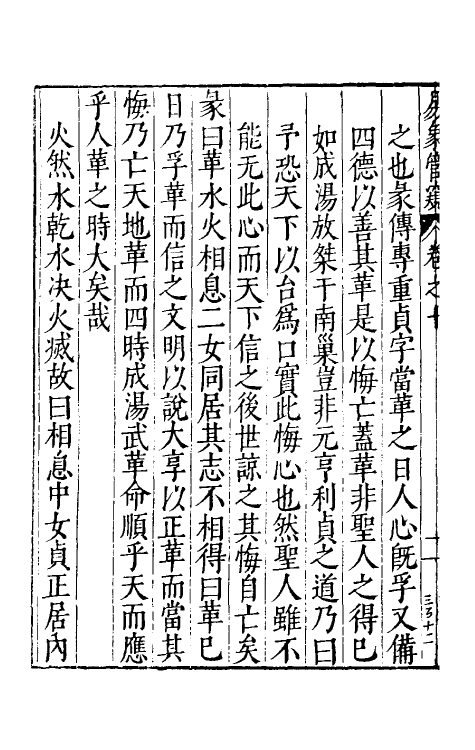 易象管窺 卷之十 十一
之也彖傳專重貞字當革之日人心旣孚又備
四德以善其革是以悔亡蓋革非聖人之得已
如成湯放桀于南巢豈非元亨利貞之道乃曰
予恐天下以台爲口實此悔心也然聖人雖不
能无此心而天下信之後世諒之其悔自亡矣
彖曰革水火相息二女同居其志不相得曰革已
日乃孚革而信之文明以說大亨以正革而當其
悔乃亡天地革而四時成湯武革命順乎天而應
乎人革之時大矣哉
火然水乾水决火滅故曰相息中女貞正居內